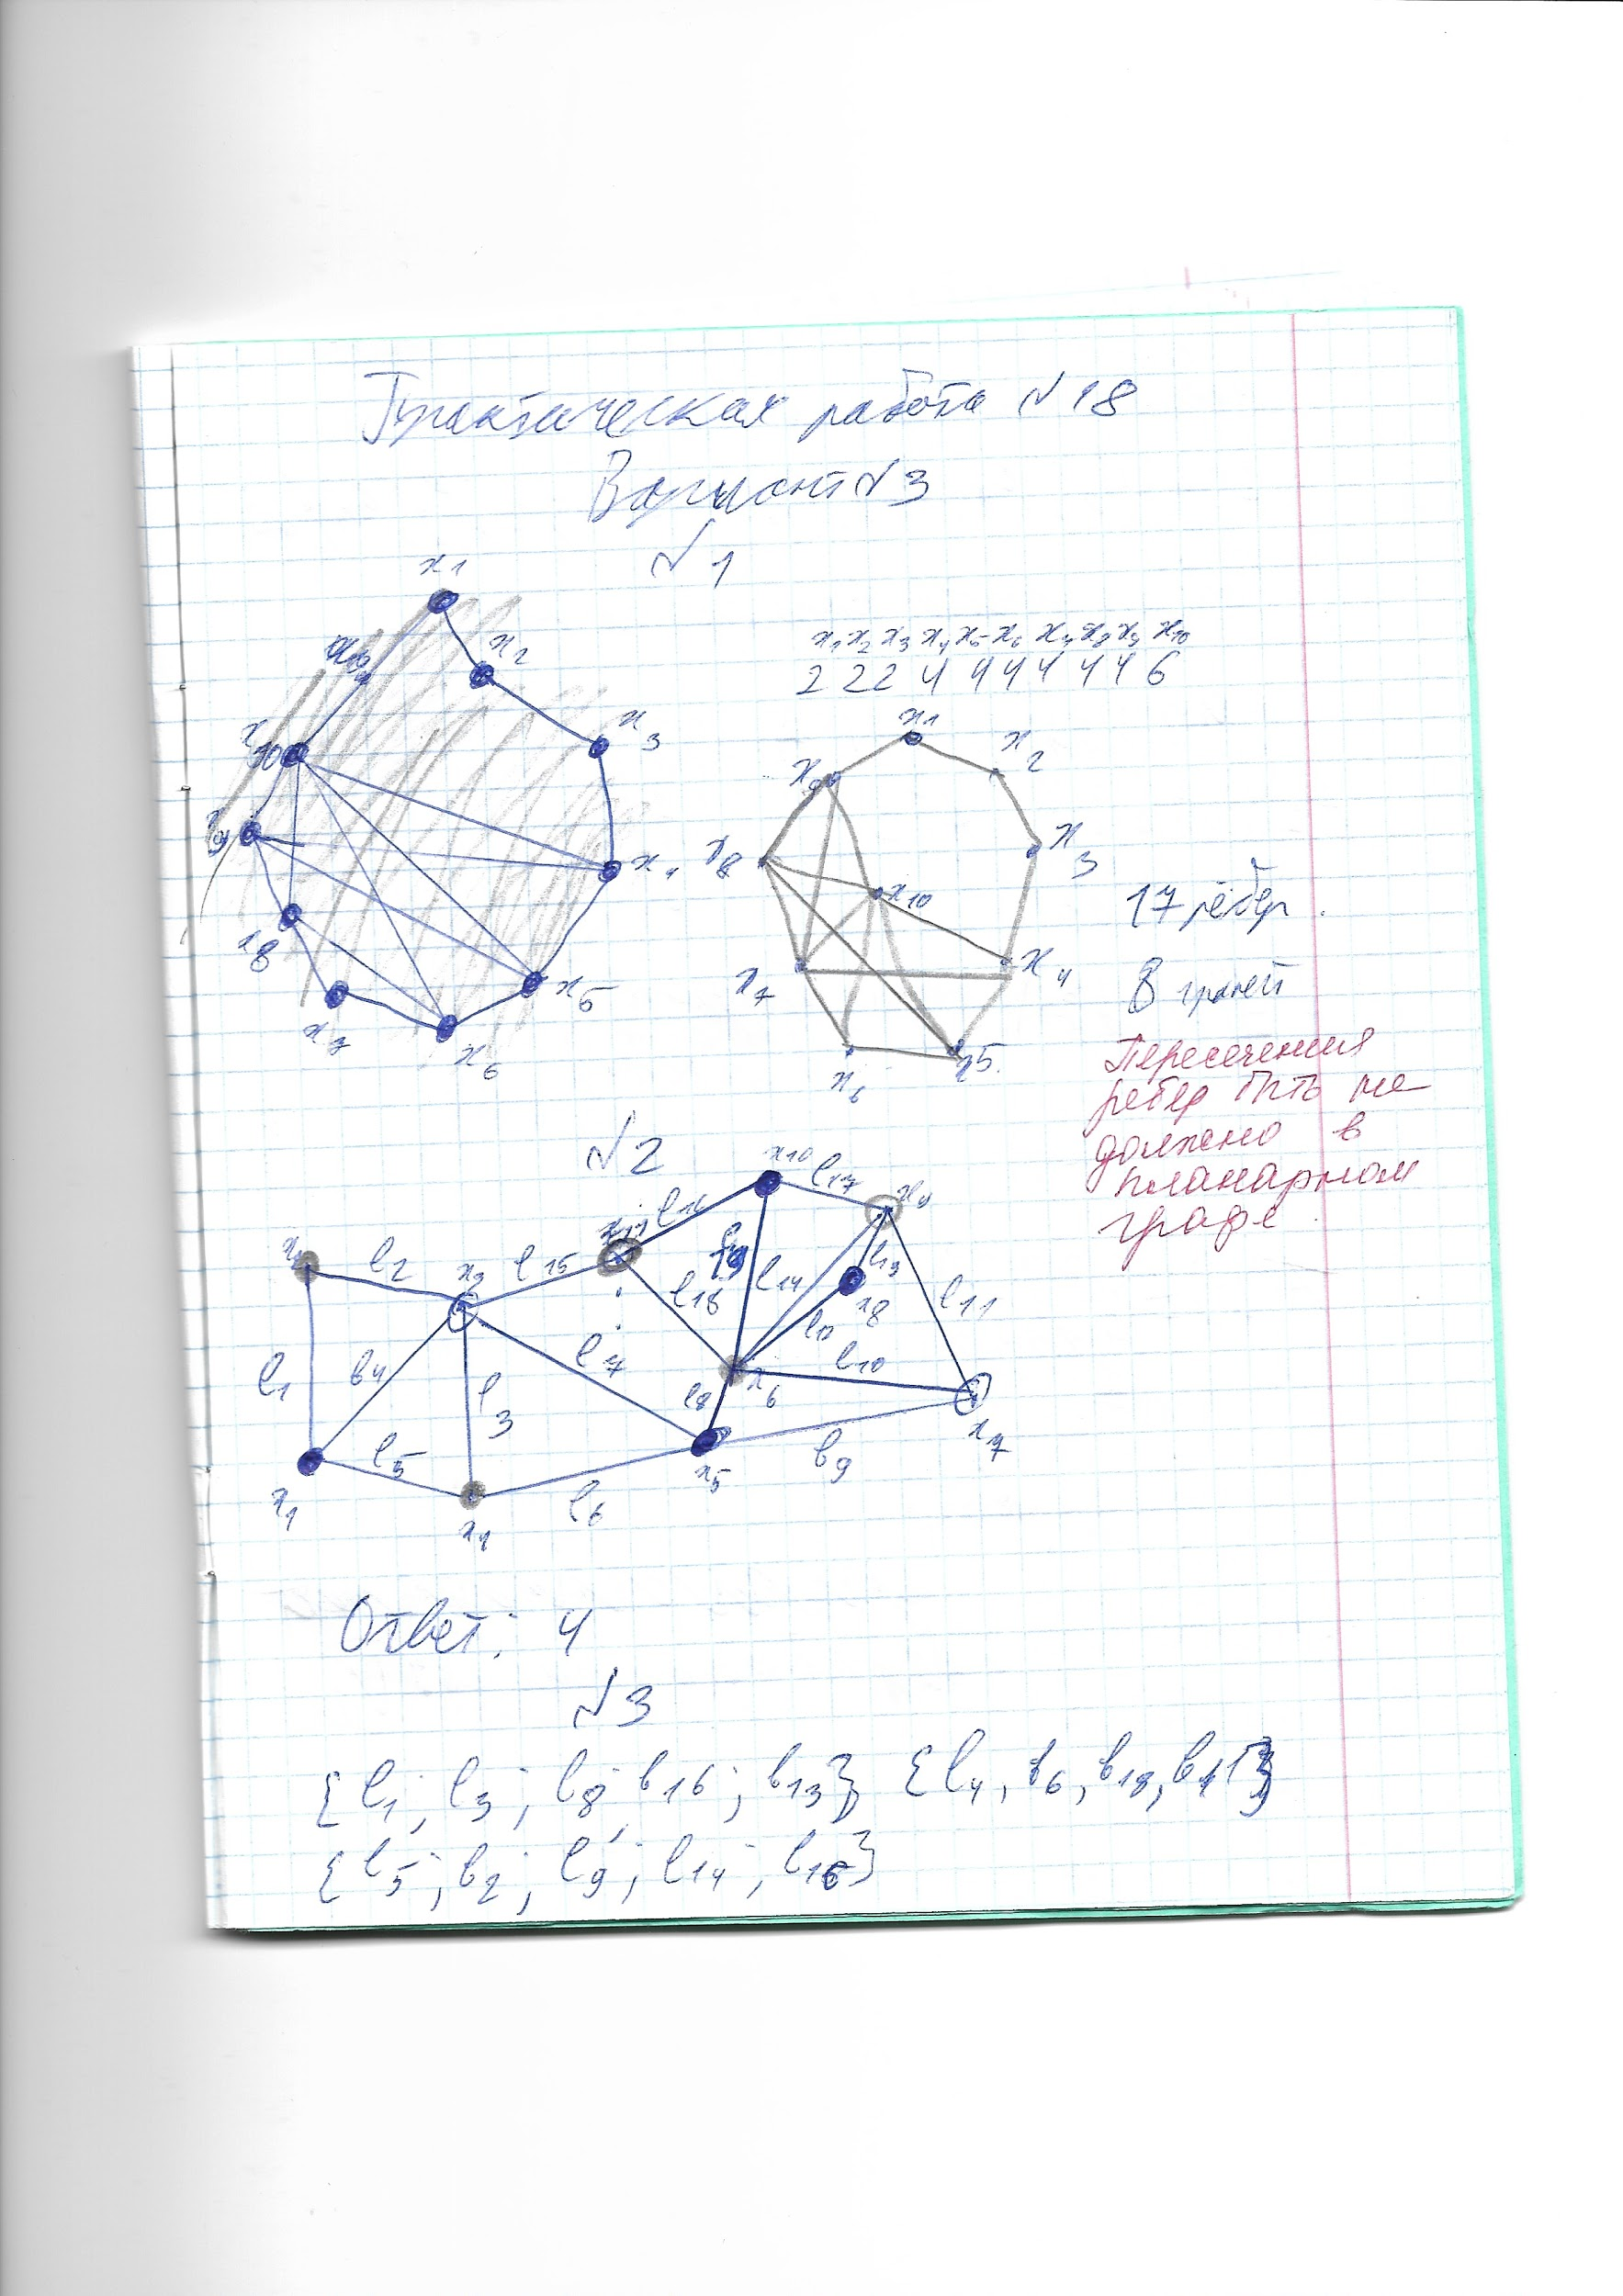 Практическая работа №18
Вариант №3
№1
x1
x2
x3
x4
x5
x6
x7
x8
x9
x10
x1 x2 x3 x4 x5 x6 x7 x8 x9 x10
2 2 2 4 4 4 4 4 4 6
x1
x2
x3
x4
x5
x6
x7
x8
x9
x10
17 рёбер.
8 граней
Пересечения
ребер быть не
должно в
планарном
графе.
№2
x10 l17 x9
x11 l16
l2 x3 l15 l18 l14 l13 l11
x8
l1 l4 l3 l7 l8 x6 l10
l5 x5 l9 x7
x1 x4 l6
Ответ: 4
№3
{l1; l3; l8; l16; l13} {l4, l6, l18, l11}
{l5; l2; l9; l14; l16}